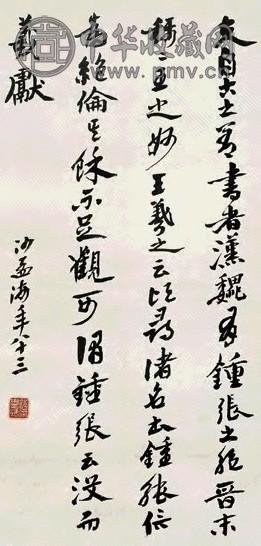 中华收藏网
www.pmv.cn
夫自古之善書者漢魏有鍾張之絕晉末
稱二王之妙王羲之云頃尋諸名書鍾張信
為絕倫其餘不足觀可謂鍾張云沒而
羲獻
沙孟海年八十三